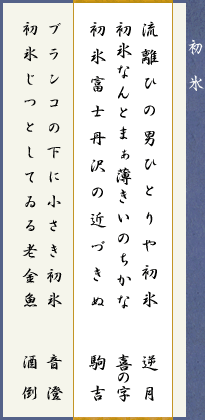 初氷
流離ひの男ひとりや初氷 逆月
初氷なんとまぁ薄きいのちかな 喜の字
初氷富士丹沢の近づきぬ 駒吉
ブランコの下に小さき初氷 音澄
初氷じつとしてゐる老金魚 酒倒